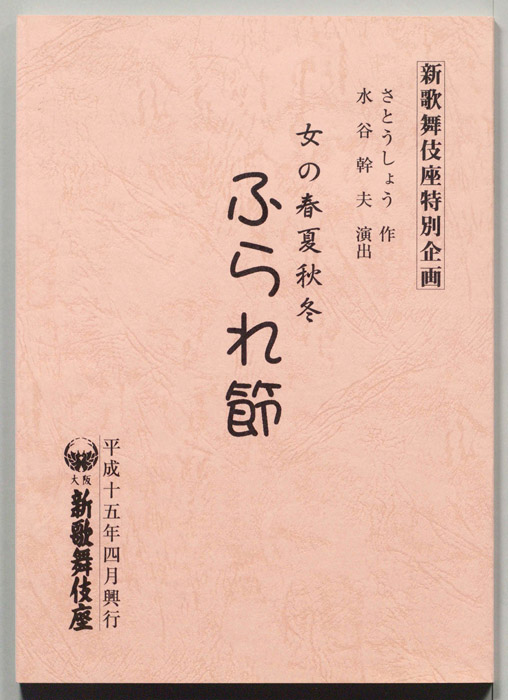 新歌舞伎座特別企画
さとうしょう 作
水谷幹夫 演出
女の春夏秋冬
ふられ節
平成十五年四月興行
大阪
新歌舞伎座